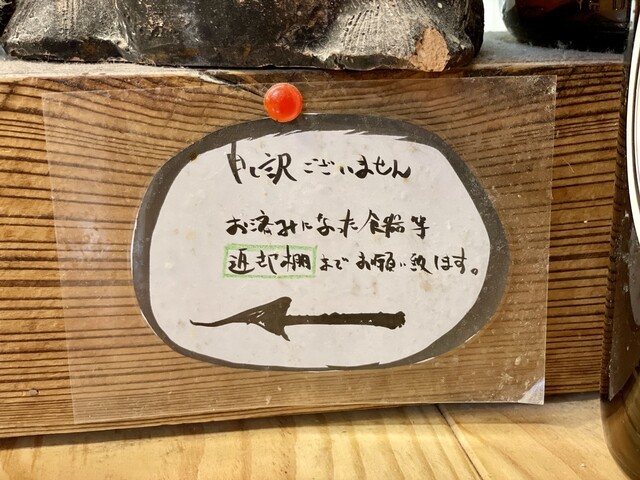 申し訳ございません
お済みになった食器等
返却棚までお願い致します。